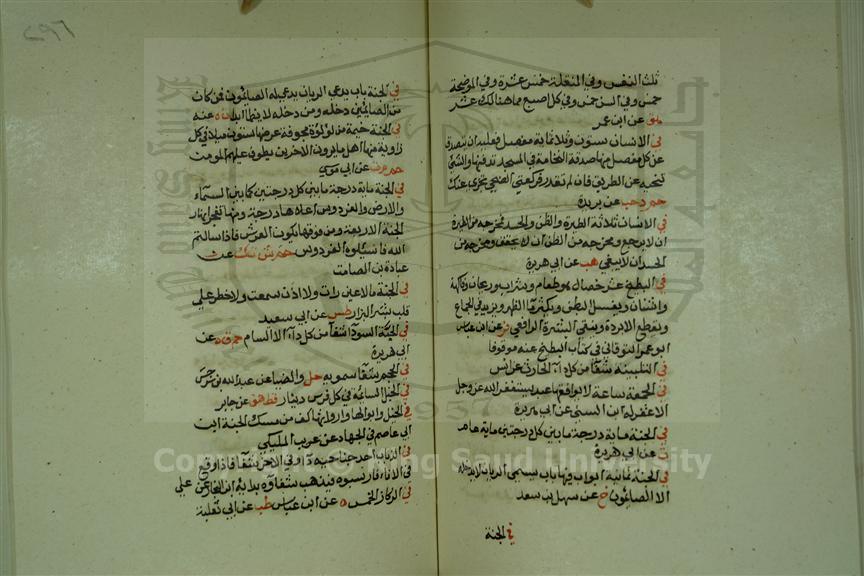 ثلث النفس وفي المنقلة خمس عشرة وفي الموضحة
خمس وفي السن خمس وفي كل اصبع مما هنالك عشر
عن ابن عمر
في الانسان ستون وثلاثماية مفصل فعليه ان يتصدق
عن كل مفصل منها صدقة النخاعة في المسجد تدفنها والشئ
تنحيه عن الطريق فان لم تقدر فركعتي الضحى تجزى عنك
حم د حب عن بريدة
في الانسان ثلاثة الطيرة والظن والحسد فمخرجه من الطيرة
ان لا يرجع ومخرجه من الظن ان لا يحقق ومخرجه من
الحسد ان لا يبغي هب عن ابي هريرة
في البطيخ عشر خصال هو طعام وشراب وريحان وفاكهة
واشنان ويغسل البطن ويكثر ماء الظهر ويزيد في الجماع
ويقطع الابردة وينقي البشرة الرافعي فر عن ابن عباس
ابو عمر النوقاني في كتاب البطيخ عنه موقوفا
في التلبينة شفآ من كل دآء الحارث عن انس
في الجمعة ساعة لا يوافقها عبد يستغفر الله عز وجل
الا غفر له ابن السني عن ابي هريرة
في الجنة ماية درجة ما بين كل درجتين ماية عام
ت عن ابي هريرة
في الجنة ثمانية ابواب فيها باب يسمى الريان لا يدخله
الا الصائمون خ عن سهل بن سعد
في الجنة
٢٩٦
في الجنة باب يدعى الريان يدعى له الصائمون فمن كان
من الصائمين دخله ومن دخله لا يظمأ ابدا ت ه عنه
في الجنة خيمة من لؤلؤة مجوفة عرضها ستون ميلا في كل
زاوية منها اهل ما يرون الاخرين يطوف عليهم المومن
حم م ت عن ابي موسى
في الجنة ماية درجة ما بين كل درجتين كما بين السمآء
والارض والفردوس اعلاها درجة ومنها تفجر انهار
الجنة الاربعة ومن فوقها يكون العرش فاذا سالتم
الله فاسئلوه الفردوس حم ش ت ك عن
عبادة بن الصامت
في الجنة ما لا عين رات ولا اذن سمعت ولا خطر على
قلب بشر البزار طس عن ابي سعيد
في الحبة السودآ شفآ من كل دآء الا السام حم ق ه عن
ابي هريرة
في الحجم شفآ سمويه حل والضيا عن عبد الله بن سرجس
في الخيل السائمة في كل فرس دينار قط هق عن جابر
في الخيل وابوالها وارواثها كف من مسك الجنة ابن
ابي عاصم في الجهاد عن عريب المليكي
في الذباب احد جناحيه دآ وفي الاخر شفآ فاذا وقع
في الاناء فارسبوه فيذهب شفاؤه بدايه ابن النجار عن علي
في الركاز الخمس ه عن ابن عباس طب عن ابي ثعلبة
Copyright © King Saud University
1957